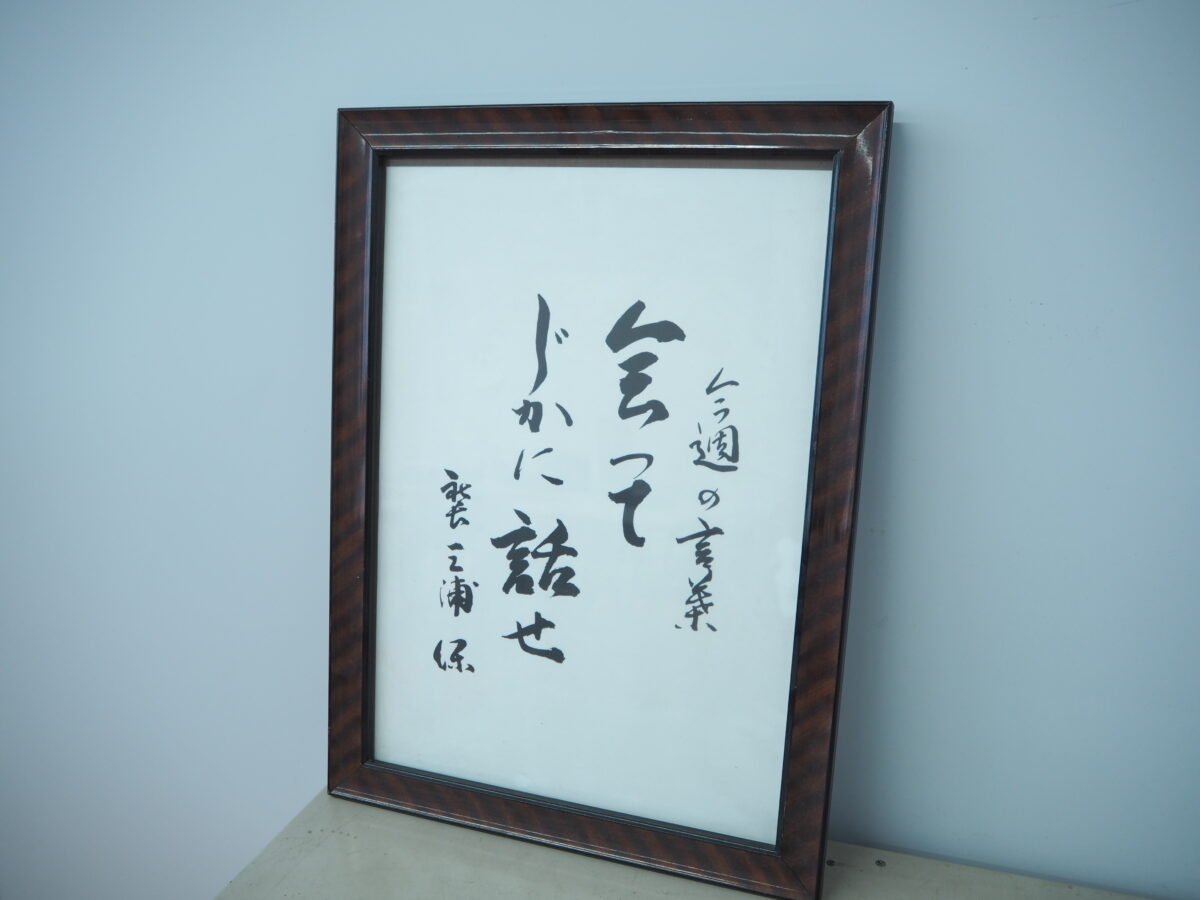 今週の言葉
会って
じかに話せ
社長 三浦 保